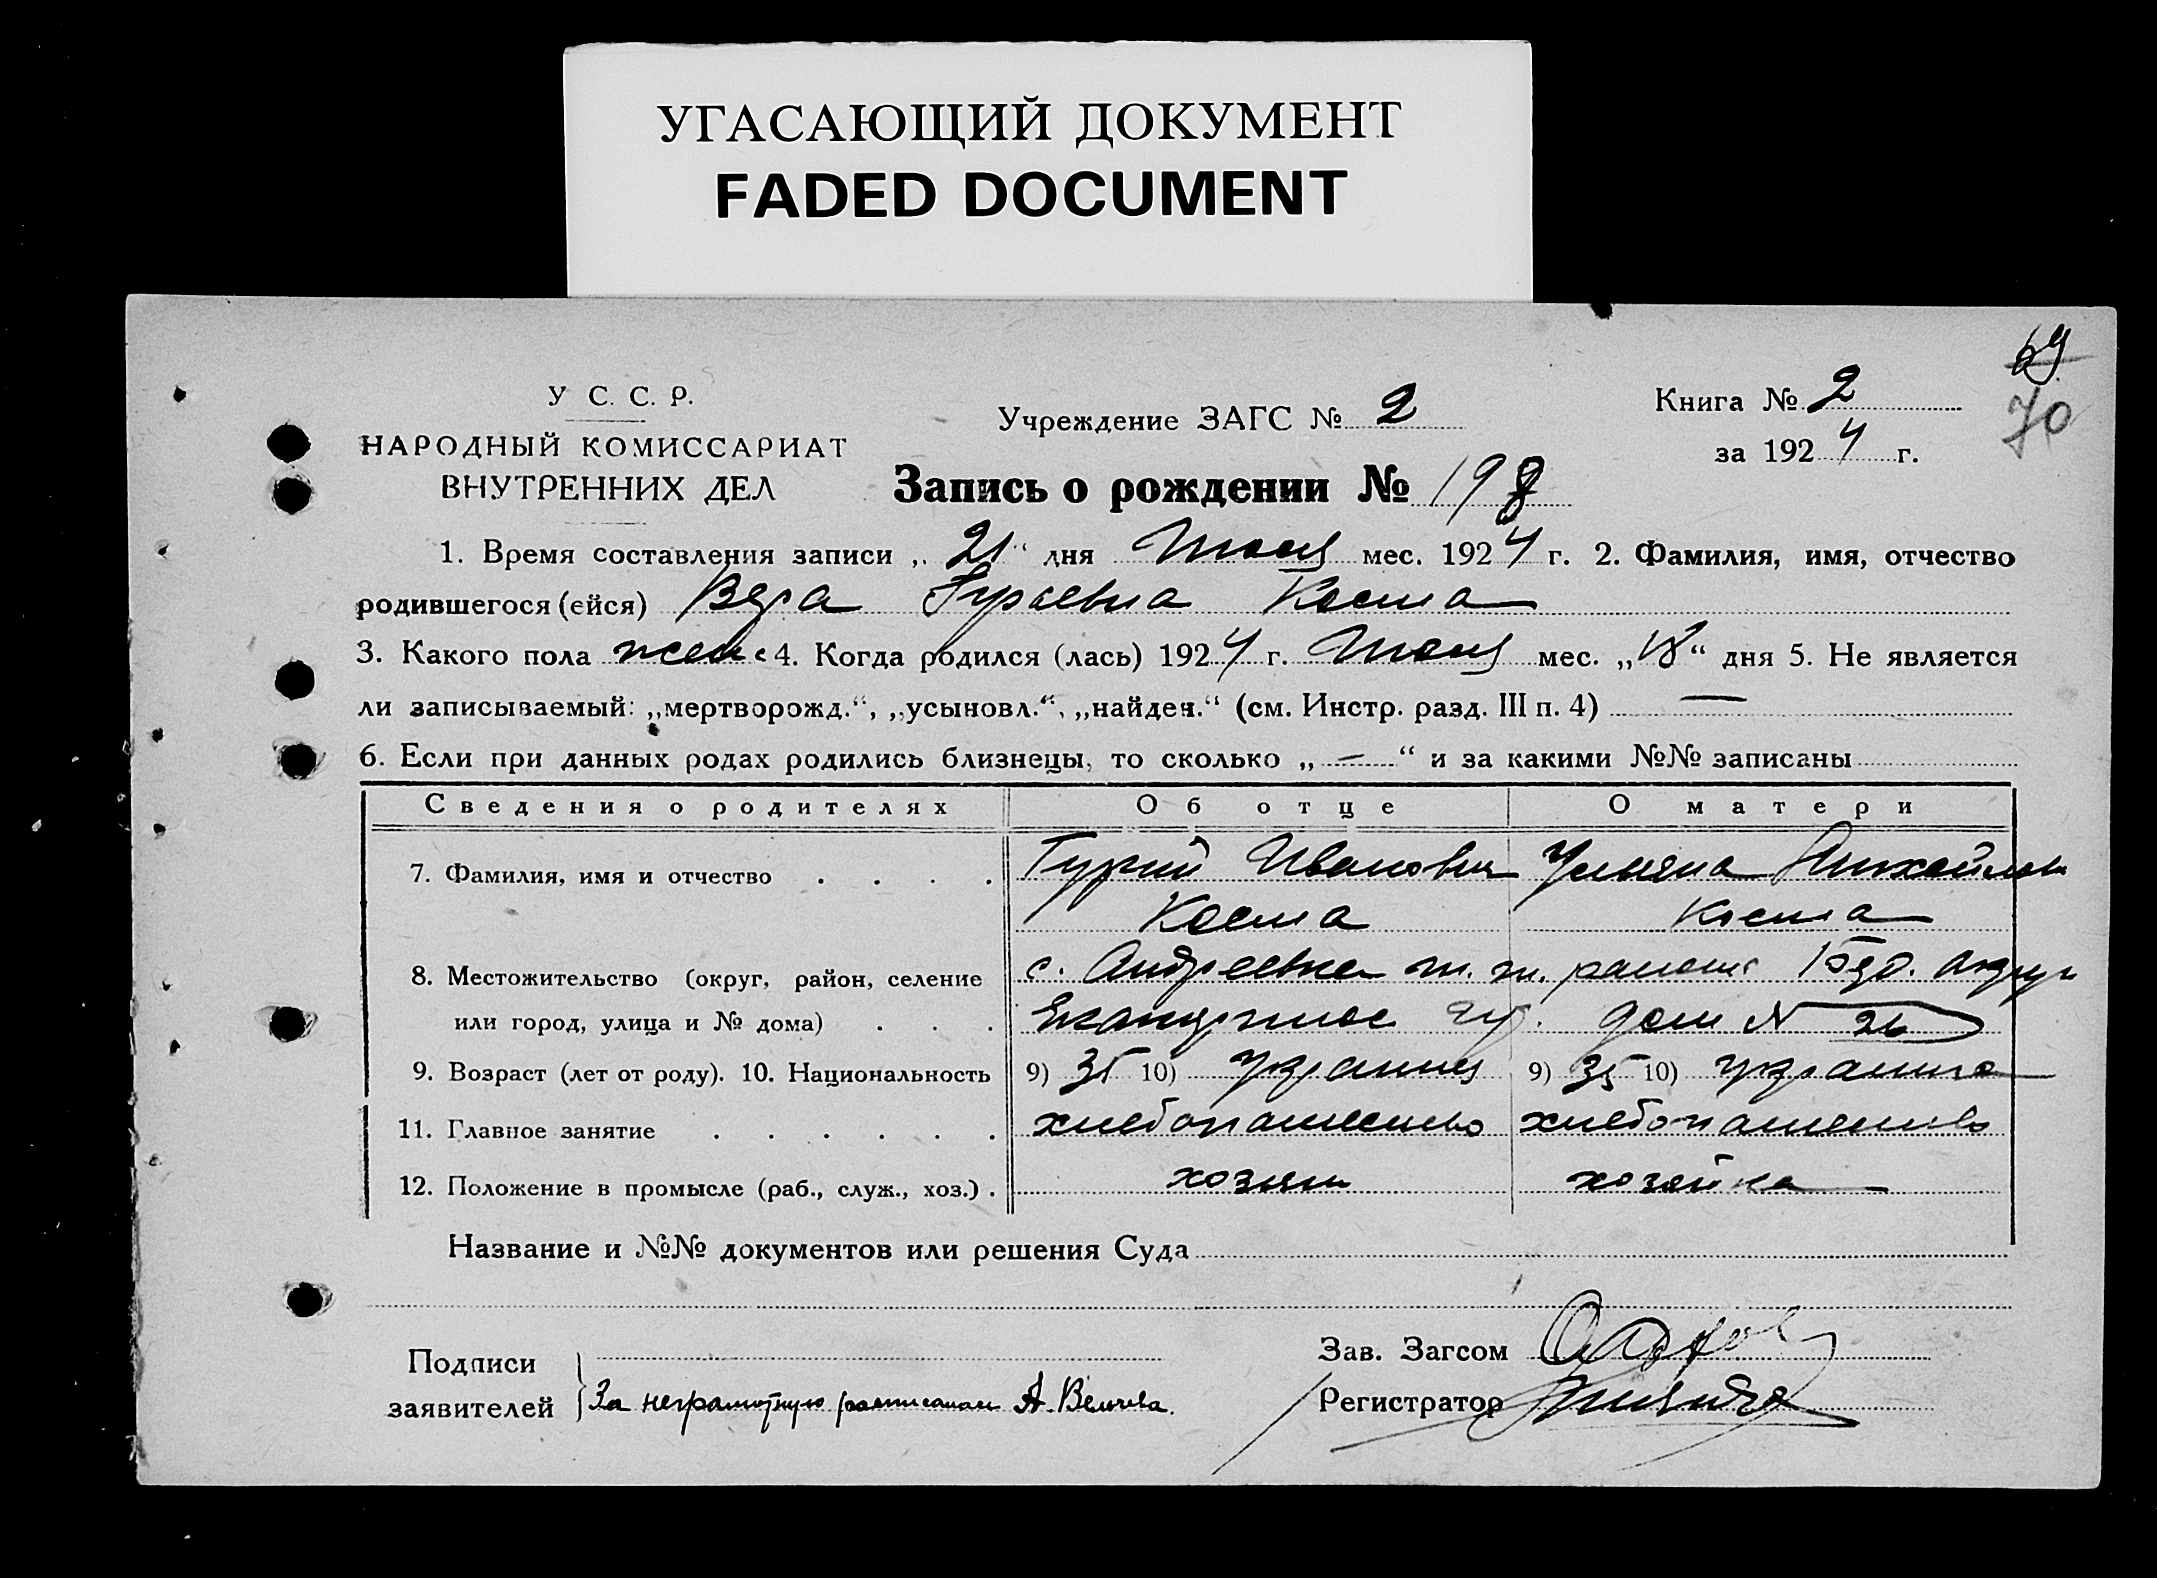 УГАСАЮЩИЙ ДОКУМЕНТ
FADED DOCUMENT
69
70
У С. С. Р.
НАРОДНЫЙ КОМИССАРИАТ
ВНУТРЕННИХ ДЕЛ
Учреждение ЗАГС № 2
Книга № 2
за 1924 г.
Запись о рождении № 198
1. Время составления записи „ 21 “ дня Июля мес. 1924 г. 2. Фамилия, имя, отчество
родившегося (ейся) Вера Гурьевна Косма
3. Какого пола женс 4. Когда родился (лась) 1924 г. Июля мес. „18“ дня 5. Не является
ли записываемый: „мертворожд.“, „усыновл.“, „найден.“ (см. Инстр. разд. III п. 4) —
6. Если при данных родах родились близнецы, то сколько „ — “ и за какими №№ записаны
Сведения о родителях Об отце О матери
7. Фамилия, имя и отчество . . . . Гурий Иванович Ульяна Михайлов
Косма Косма
8. Местожительство (округ, район, селение с. Андреевка района Бердя. округа
или город, улица и № дома) . . . гу. дом № 26
9. Возраст (лет от роду). 10. Национальность 9) 35 10) украинец 9) 35 10) украинка
11. Главное занятие . . . . . . хлебопашество хлебопашество
12. Положение в промысле (раб., служ., хоз.) . хозяин хозяйка
Название и №№ документов или решения Суда
Подписи
заявителей За неграмотную расписалась А.
Зав. Загсом
Регистратор